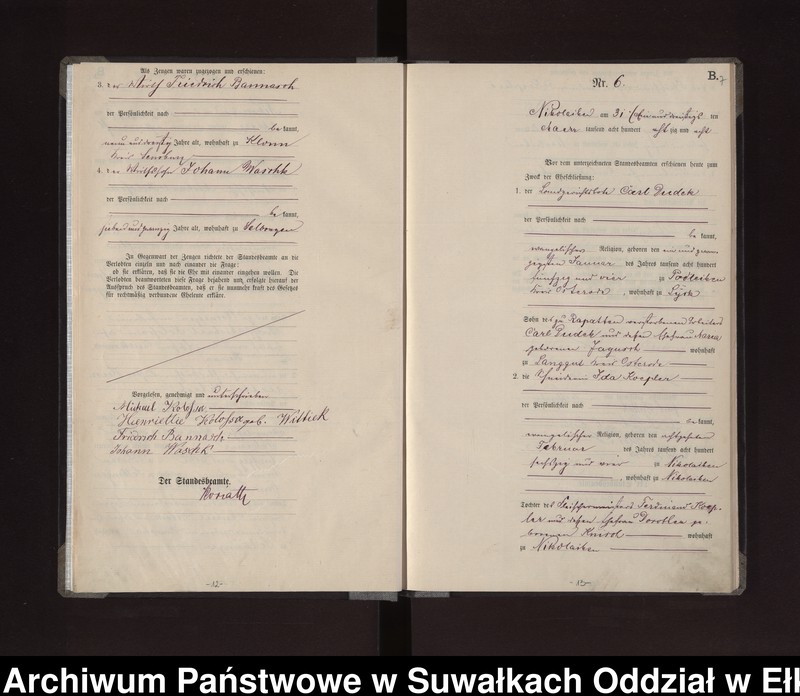 Als Zeugen waren zugezogen und erschienen:
3. der Wirth Friedrich Bannasch
der Persönlichkeit nach
be kannt,
neun und dreißig Jahre alt, wohnhaft zu Klonn
Kreis Sensburg
4. der Wirthssohn Johann Waschk
der Persönlichkeit nach
be kannt,
sieben und zwanzig Jahre alt, wohnhaft zu Selbongen
In Gegenwart der Zeugen richtete der Standesbeamte an die
Verlobten einzeln und nach einander die Frage:
ob sie erklären, daß sie die Ehe mit einander eingehen wollen. Die
Verlobten beantworteten diese Frage bejahend und erfolgte hierauf der
Ausspruch des Standesbeamten, daß er sie nunmehr kraft des Gesetzes
für rechtmäßig verbundene Eheleute erkläre.
Vorgelesen, genehmigt und unterschrieben
Michael Kolossa
Henriette Kolossa geb. Wittek
Friedrich Bannasch
Johann Waschk
Der Standesbeamte.
-12-
B.
Nr. 6.
Nikolaiken am 31 ten
tausend acht hundert acht zig und acht
Vor dem unterzeichneten Standesbeamten erschienen heute zum
Zweck der Eheschließung:
1. der Landgerichtsbote Carl Dudek
der Persönlichkeit nach
be kannt,
evangelischer Religion, geboren den ein und zwan
zigsten Januar des Jahres tausend acht hundert
fünfzig und vier zu Podleiken
Kreis Osterode, wohnhaft zu Lyck
Sohn des zu Rapatten verstorbenen
Carl Dudek und dessen Ehefrau
geborenen Jagusch wohnhaft
zu Langgut Kreis Osterode
2. die Schneiderin Ida Koepler
der Persönlichkeit nach
be kannt,
evangelischer Religion, geboren den achtzehnten
Februar des Jahres tausend acht hundert
sechszig und vier zu Nikolaiken
, wohnhaft zu Nikolaiken
Tochter des Fleischermeisters Ferdinand Koep-
ler und dessen Ehefrau Dorothea ge-
borenen wohnhaft
zu Nikolaiken
-13-
Archiwum Państwowe w Suwałkach Oddział w Eł